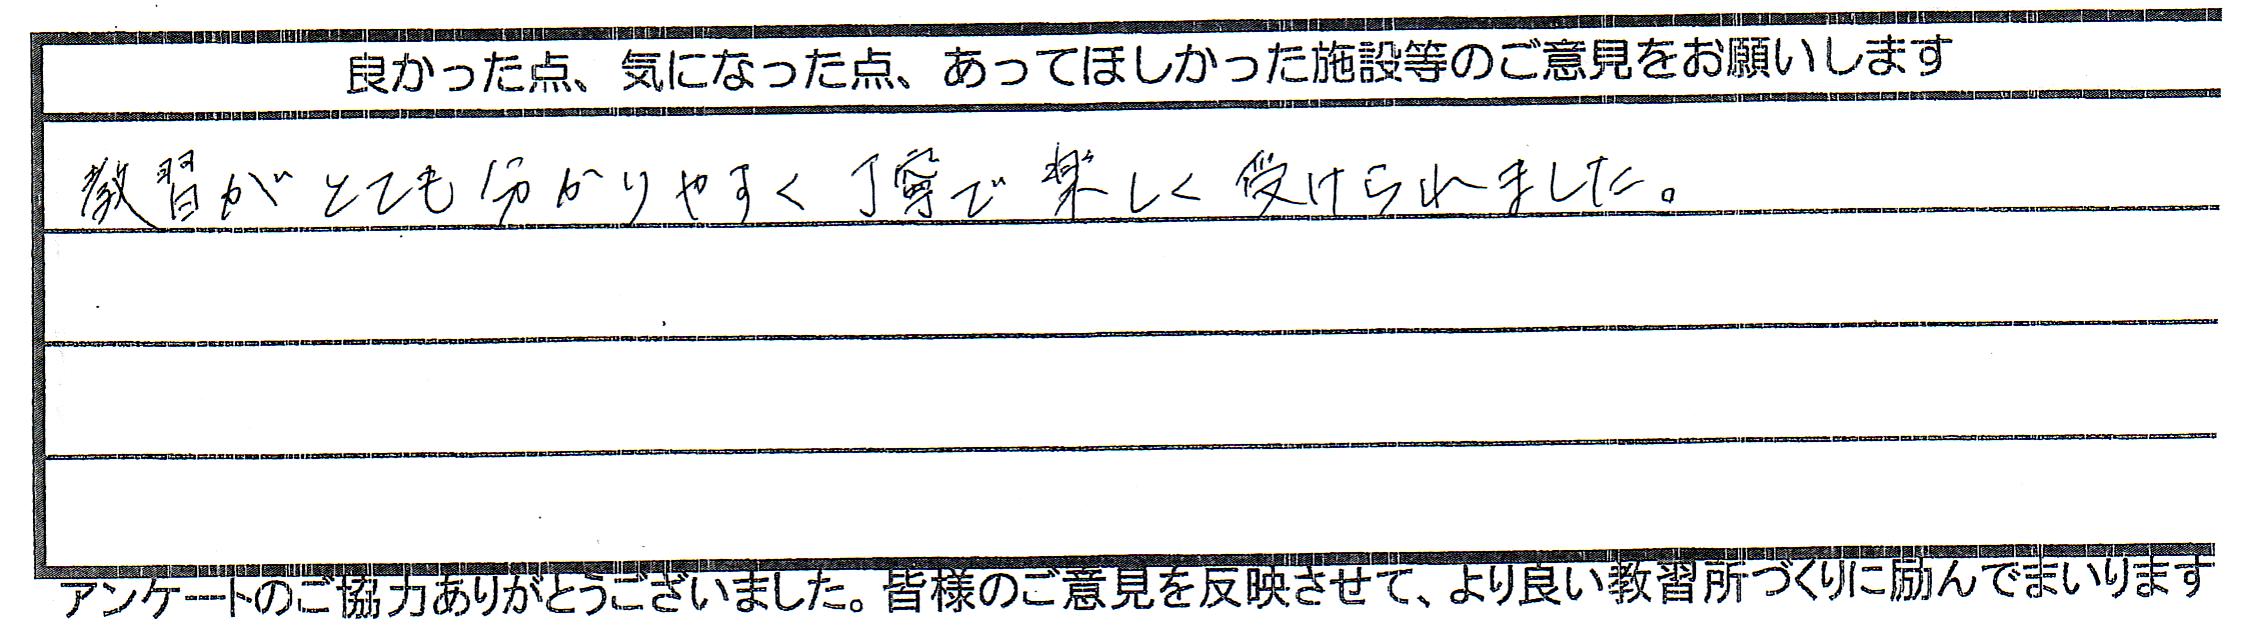 良かった点、気になった点、あってほしかった施設等のご意見をお願いします
教習がとても分かりやすく丁寧で楽しく受けられました。
アンケートのご協力ありがとうございました。皆様のご意見を反映させて、より良い教習所づくりに励んでまいります